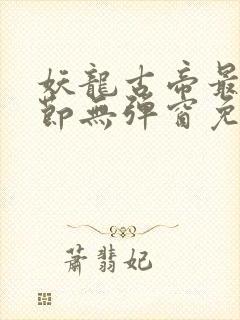 妖龍古帝最
節無彈窗免
蕭翡妃